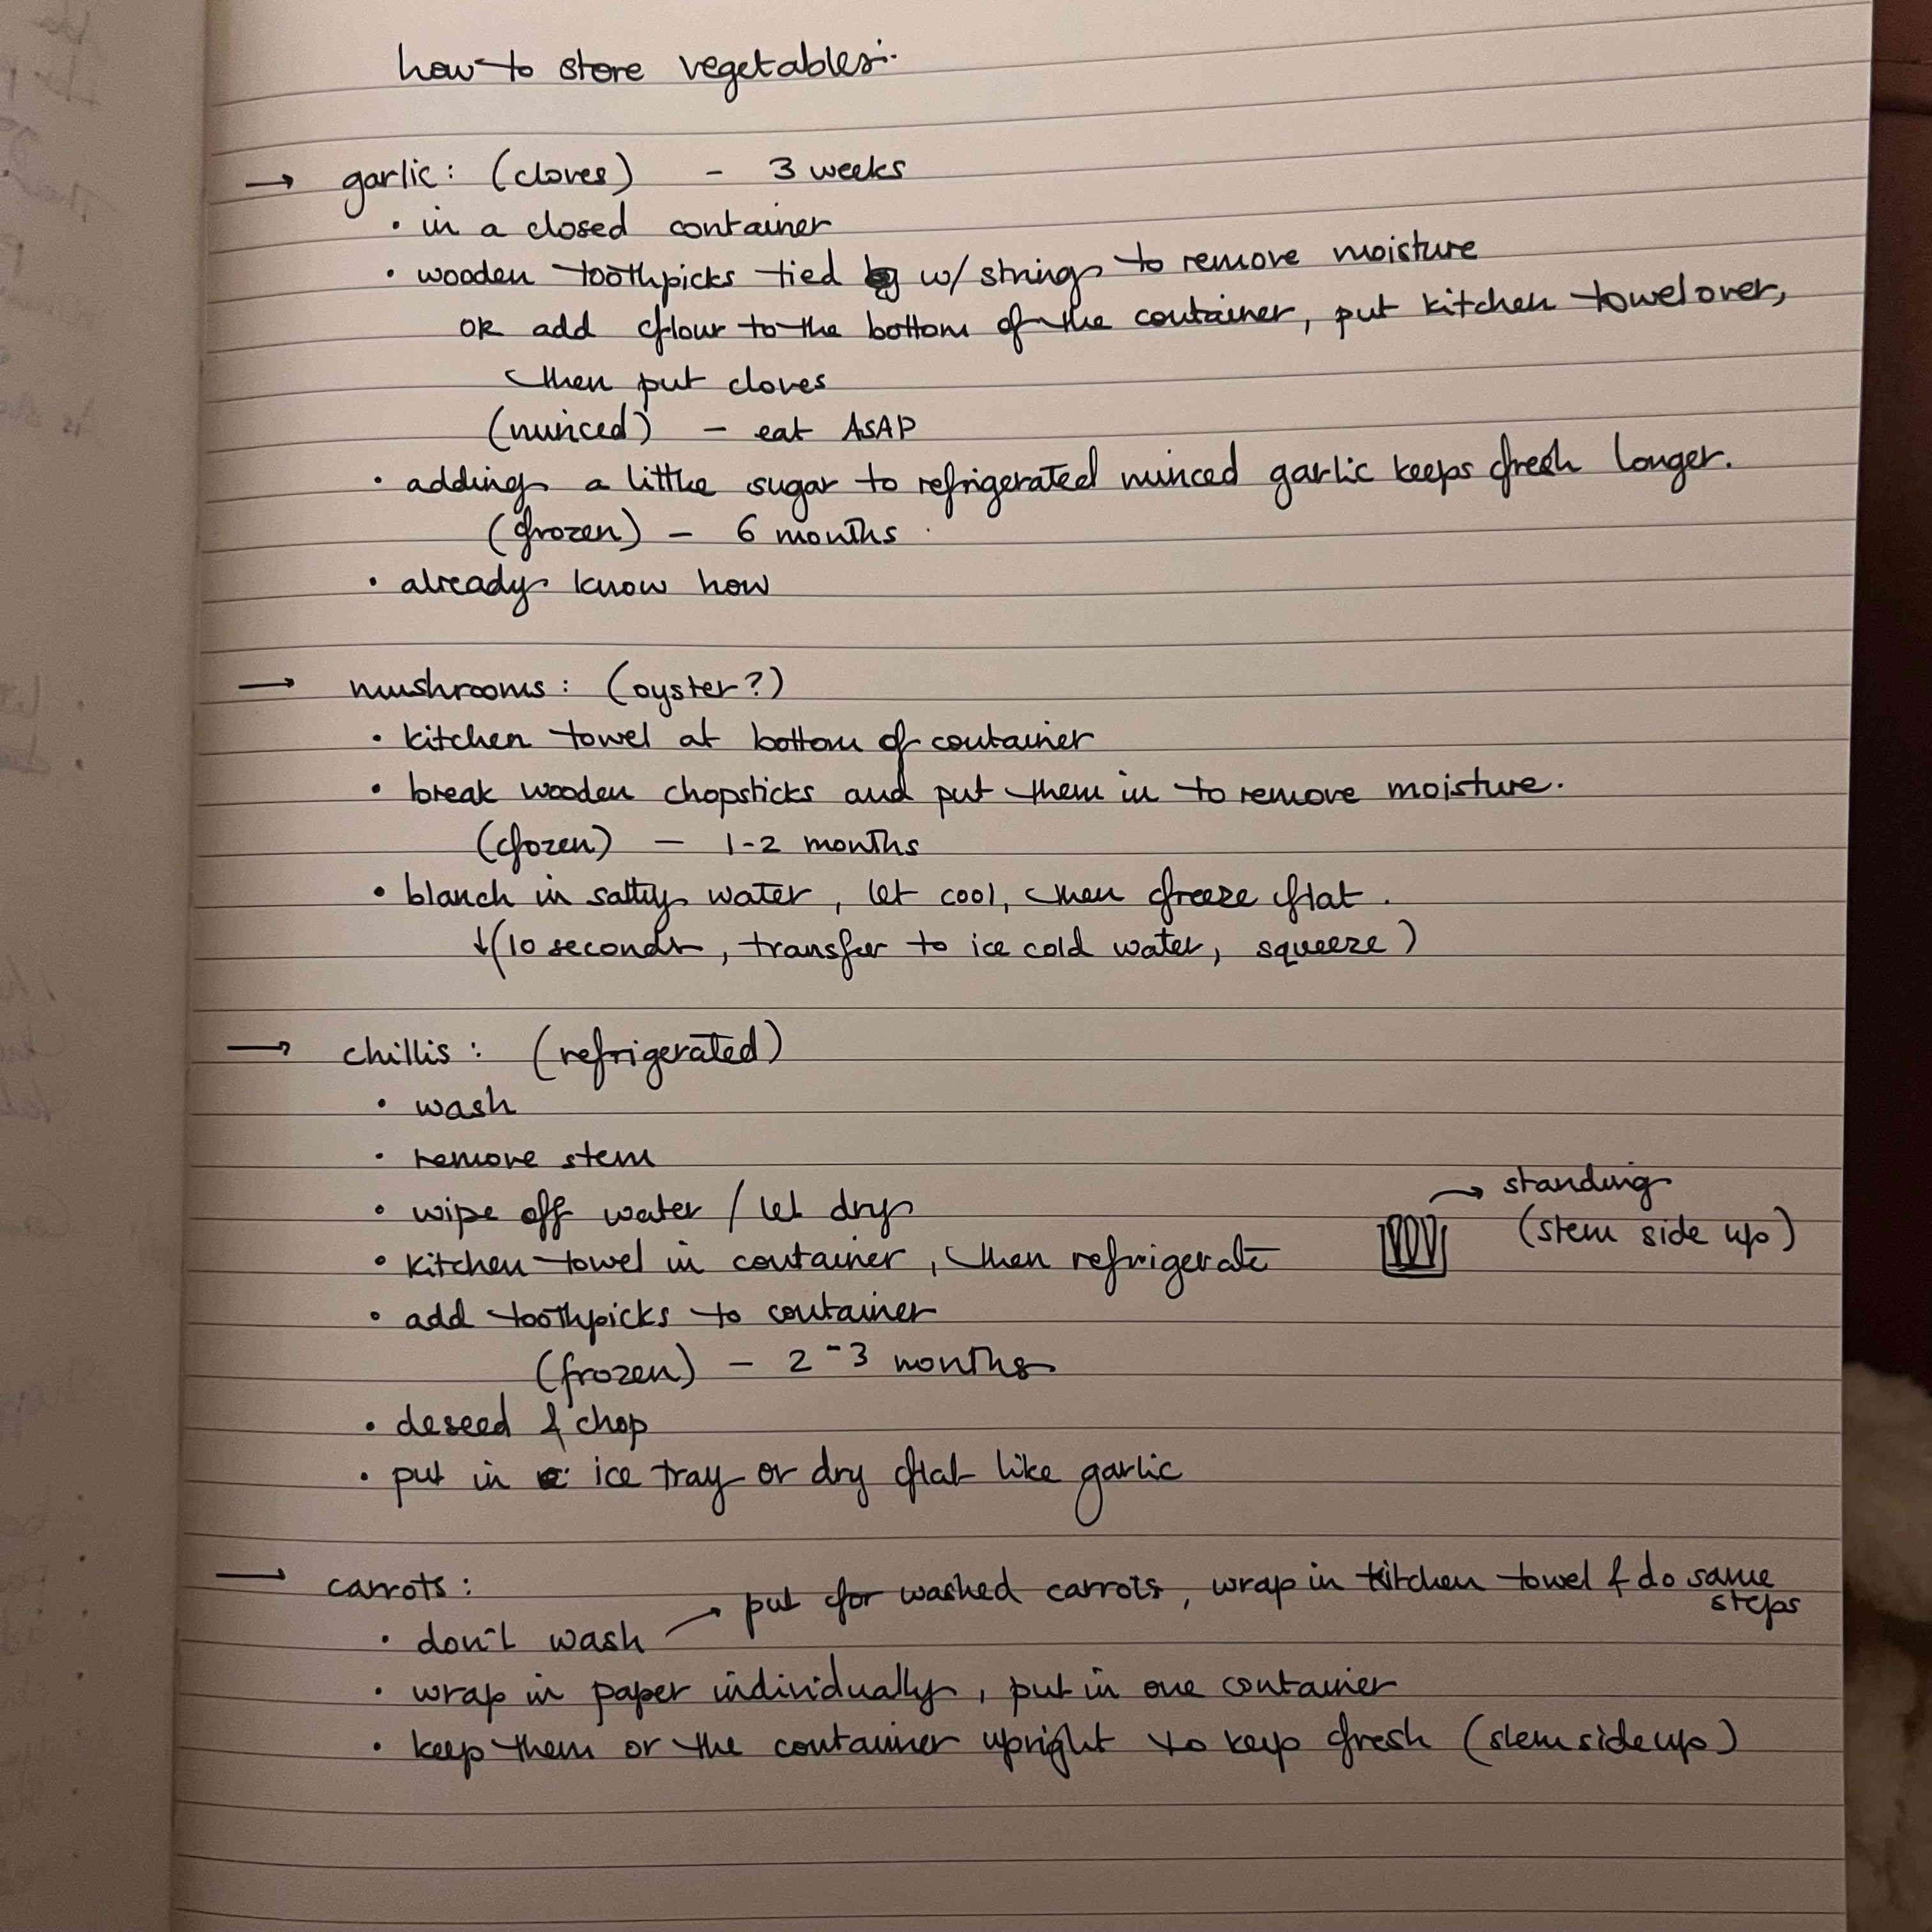 how to store vegetables:
→ garlic: (cloves) - 3 weeks
• in a closed container
• wooden toothpicks tied w/ strings to remove moisture
OR add flour to the bottom of the container, put kitchen towel over,
then put cloves
(minced) - eat ASAP
• adding a little sugar to refrigerated minced garlic keeps fresh longer.
(frozen) - 6 months
• already know how
→ mushrooms: (oyster?)
• kitchen towel at bottom of container
• break wooden chopsticks and put them in to remove moisture.
(fozen) - 1-2 months
• blanch in salty water, let cool, then freeze flat.
↓(10 seconds, transfer to ice cold water, squeeze)
→ chillis: (refrigerated)
• wash
• remove stem
• wipe off water / let dry
• kitchen towel in container, then refrigerate
→ standing
(stem side up)
• add toothpicks to container
(frozen) - 2-3 months
• deseed & chop
• put in ice tray or dry flat like garlic
→ carrots:
• don't wash → put for washed carrots, wrap in kitchen towel & do same
steps
• wrap in paper individually, put in one container
• keep them or the container upright to keep fresh (stem side up)